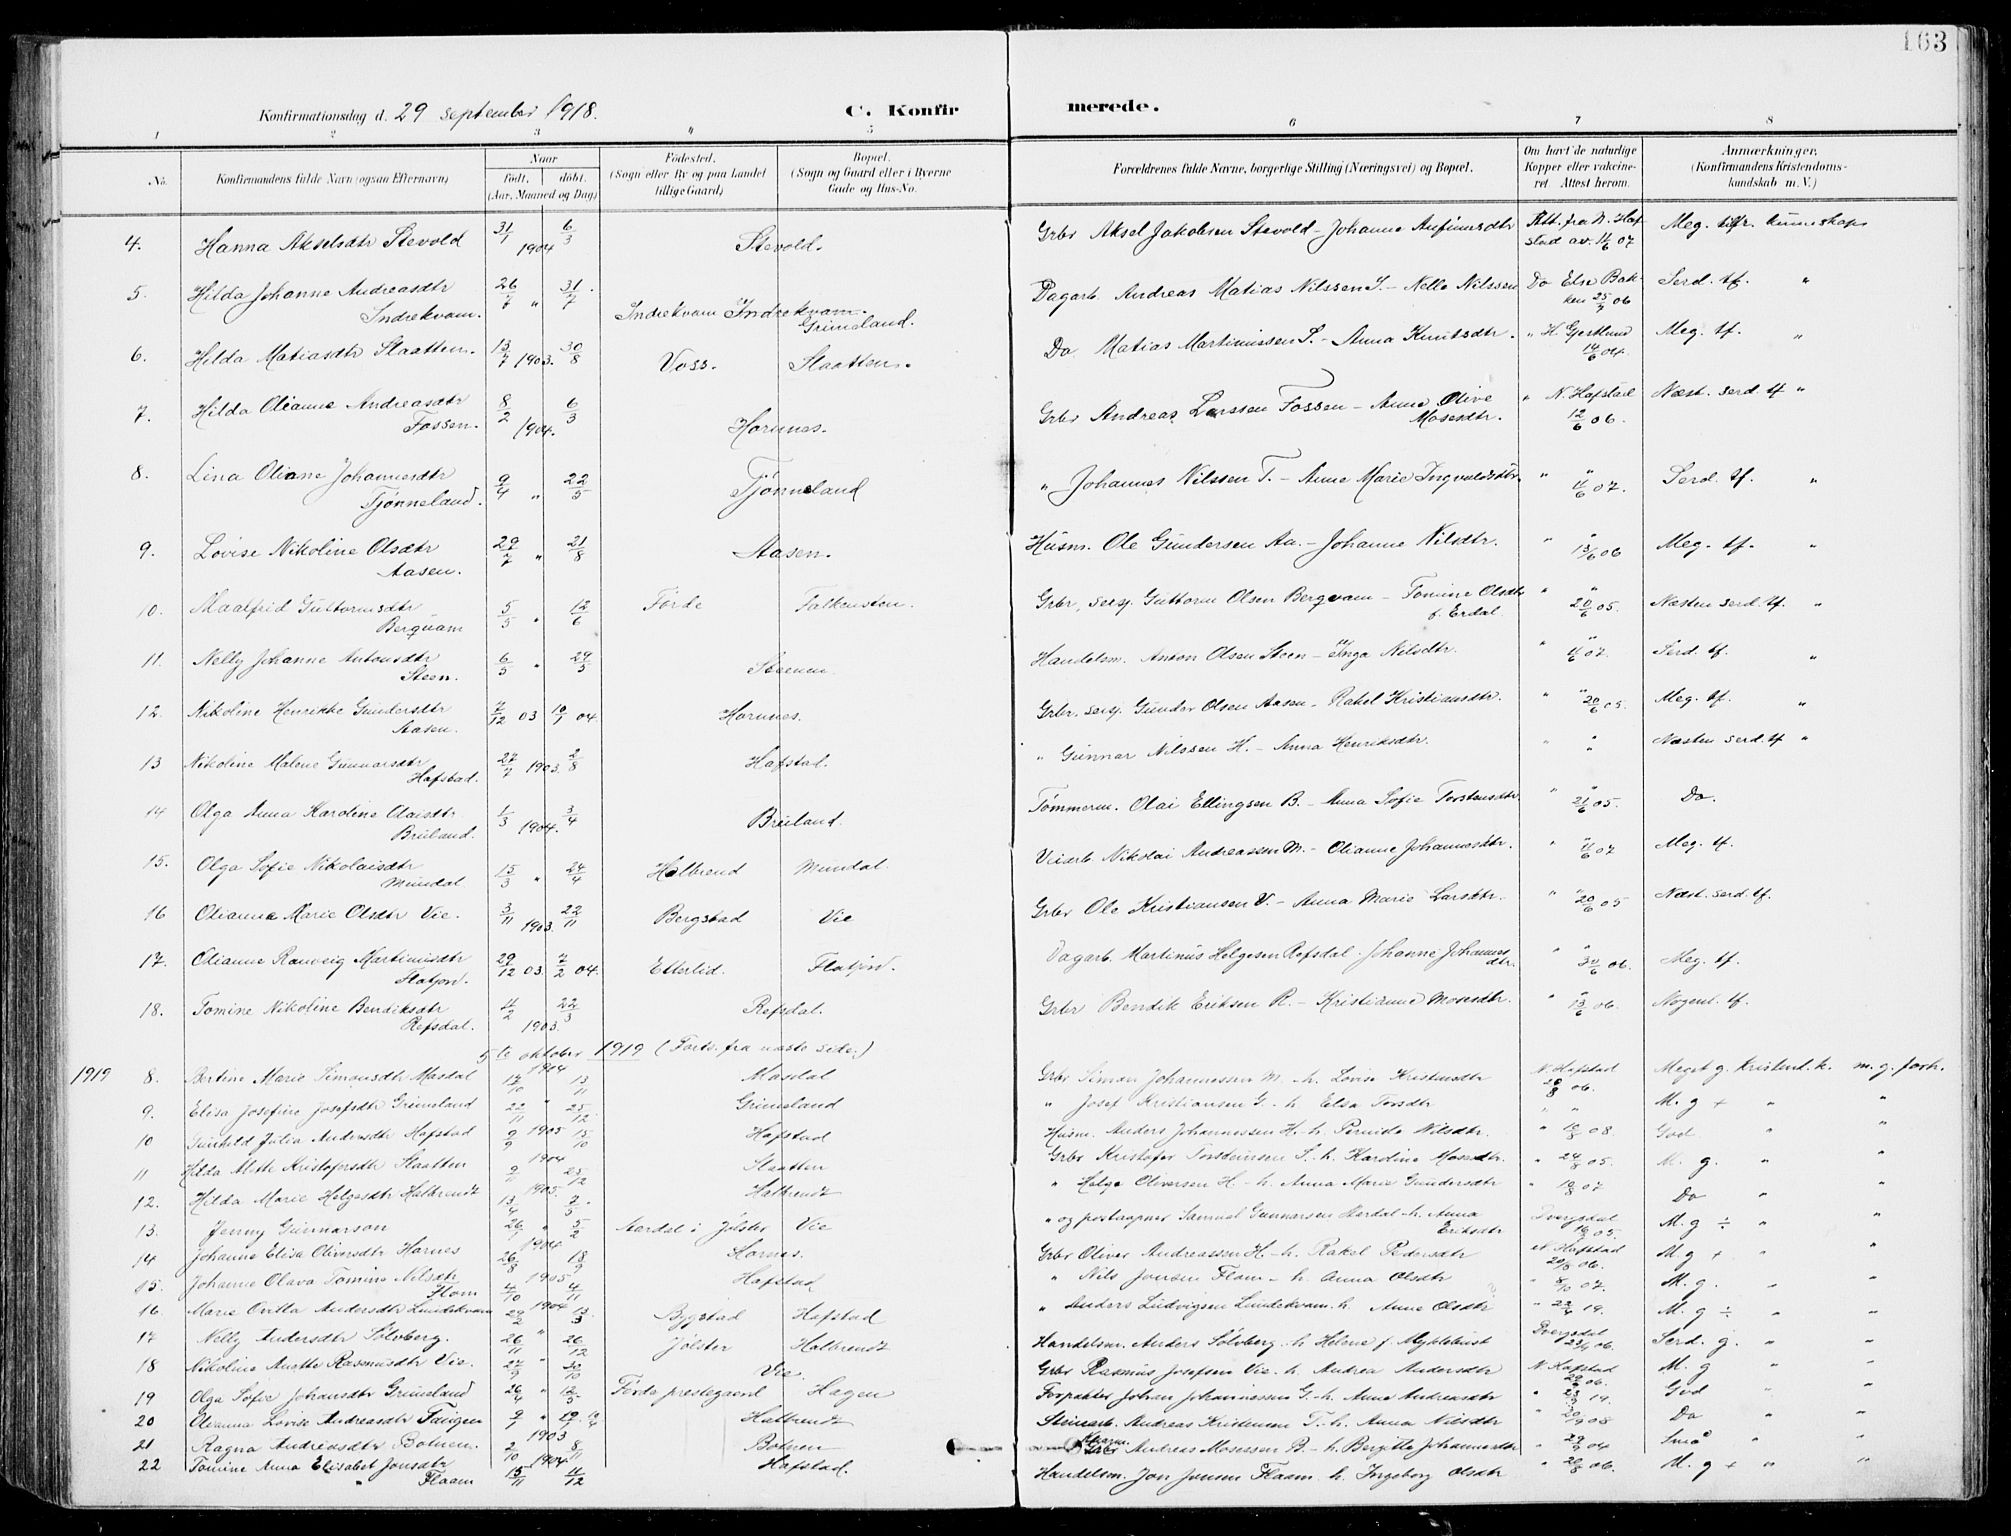 163
Konfirmationsdag d. 29 september 1918.
C. Konfirmerede.
1 2 3 4 5 6 7 8
No. Konfirmandens fulde Navn (ogsaa Efternavn) Naar født, døbt. (Aar, Maaned og Dag) Fødested. (Sogn eller By og paa Landet tillige Gaard) Bopæl. (Sogn og Gaard eller i Byerne Gade og Hus-No. Forældrenes fulde Navne, borgerlige Stilling (Næringsvei) og Bopæl. Om havt de naturlige Kopper eller vakcineret. Attest herom. Anmærkninger. (Konfirmandens Kristendomskundskab m. V.)
4. Hanna Akselsdtr Stevold 31/1 1904 6/3 Stevold. Grbr Aksel Jakobsen Stevold - Johanne Anfinnsdtr Att. fra N. Hafstad av. 11/6 07 Meg. tilfr. kunnskaps
5. Hilda Johanne Andreasdtr Indrekvam. 26/7 " 31/7 Indrekvam Indrekvam. Grimeland. Dagarb. Andreas Matias Nilssen I. - Nelle Nilssen Do Else Bakken 25/7 06 Serd. tf. "
6. Hilda Matiasdtr Slaatten. 13/7 1903. 30/8 Voss. Slaatten. Do Matias Martinussen S. - Anna Knutsdtr. " H. Gjertlund 14/6 04. Meg. tf. "
7. Hilda Olianne Andreasdtr Fossen. 8/2 1904. 6/3 Hornnes. Grbr Andreas Larssen Fossen - Anne Olive Mosesdtr. " N. Hafstad 12/6 06. Næst. serd. tf "
8. Lina Oliane Johannesdtr Tjønneland. 9/4 " 22/5 Tjønneland " Johannes Nilssen T. - Anne Marie Ingvaldsdtr. " " 11/6 07. Serd. tf. "
9. Lovise Nikoline Olsdtr Aasen. 29/7 " 21/8 Aasen. Husm. Ole Gundersen Aa. - Johanne Nilsdtr. " " 13/6 06 Meg. tf. "
10. Maalfrid Guttormsdtr Bergvam 5/5 " 12/6 Førde Falkensten. Grbr, sersj. Guttorm Olsen Bergvam - Tomine Olsdtr f. Erdal " " 20/6 05. Næsten serd. tf. "
11. Nelly Johanne Antonsdtr Steen. 6/5 " 29/5 Steenen. Handelsm. Anton Olsen Steen - Inga Nilsdtr. " " 11/6 07. Serd. tf. "
12. Nikoline Henrikke Gundersdtr Aasen. 7/12 03 10/1 04. Hornnes. Grbr. sersj. Gunder Olsen Aasen - Rakel Kristiansdtr. " " 20/6 05. Meg. tf. "
13 Nikoline Malene Gunnarsdtr Hafstad. 27/7 1903. 2/8 Hafstad. " Gunnar Nilssen H. - Anna Henriksdtr. " " Næsten serd. tf "
14 Olga Anna Karoline Olaisdtr Bruland. 1/3 1904. 3/4 Bruland. Tømmerm. Olai Ellingsen B. - Anna Sofie Torstensdtr. " " 21/6 05. Do.
15. Olga Sofie Nikolaisdtr Mundal. 15/3 " 24/4 Halbrend Mundal. Veiarb. Nikolai Andreassen M. - Olianne Johannesdtr. " " 11/6 07 Meg. tf.
16 Olianna Marie Olsdtr Vie. 3/11 1903. 22/11 Bergstad Vie Grbr Ole Kristiansen V. - Anna Marie Larsdtr. " " 20/6 05 Næst. serd. tf.
17. Olianne Ranveig Martinusdtr Flatjord. 29/12 03. 7/2 04. Etterlid. Flatjord. Dagarb. Martinus Helgesen Refsdal. Johanne Johannesdtr. " " 30/6 06. Meg. tf.
18. Tomine Nikoline Bendiksdtr Refsdal. 4/2 1903. 22/3 Refsdal. Grbr Bendik Eriksen R. - Kristianne Mosesdtr. " " 13/6 06. Nogenl. tf.
5te oktober 1919 (Forts. fra næste side.)
1919 8. Bertine Marie Simonsdtr Masdal 17/10 1904 13/11 Masdal Grbr Simon Johannessen M. h. Lovise Kristensdtr N. Hafstad 20/8 06. Meget g. Kristend. k. m. g. forh.
9. Elisa Josefine Josefsdtr Grimeland 22/11 " 25/12 Grimeland " Josef Kristiansen G. - h Elsa Torsdtr " " M. g + " "
10 Gunhild Julia Andersdtr Hafstad 9/9 1905 15/10 Hafstad Husm. Anders Johannessen H. - h. Pernida Nilsdtr. " 10/8 08. God " "
11 Hilda Mette Kristofersdtr Slaatten 9/11 1904 25/12 Slaatten Grbr Kristofer Torsteinsen S. - h. Karoline Mosesdtr. " 24/8 05. M. g. " "
12. Hilda Marie Helgesdtr Halbrendt 13/4 1905. 7/5 Halbrendt " Helge Oliversen H. - h. Anna Marie Gundersdtr " 10/8 07 Do " "
13. Jenny Gunnarson 26/1 " 5/2 Aardal i Jølster Vie " og postaapner Samuel Gunnarsen Aardal - h. Anna Eriksdtr Dvergsdal 16/7 05. M. g ÷ " "
14 Johanne Elisa Oliversdtr Hornes 26/8 1904 18/9 Hornes. Grbr Oliver Andreassen H. - h. Rakel Pedersdtr N. Hafstad 20/8 06. M. g + " "
15. Johanne Olava Tomine Nilsdtr Flom 4/10 1905 4/11 Hafstad " Nils Jonsen Flaam - h. Anna Olsdtr " 8/10 07. M. g. " "
16. Marie Ovitta Andersdtr Lundekvam 22/2 1904 13/3 Bygstad Hafstad " Anders Ludvigsen Lundekvam. h Anne Olsdtr " 22/4 19. M. g ÷ " "
17 Nelly Andersdtr Sølvberg. 26/11 " 26/12 Jølster Halbrendt Handelsm. Anders Sølvberg. h Helene f. Myklebust Dvergsdal 23/4 06. Serd. g. " "
18 Nikoline Anette Rasmusdtr Vie. 27/9 " 30/10 Vie. Grbr Rasmus Josefsen Vie - h. Andrea Andersdtr N. Hafstad 20/8 06. M. g " "
19 Olga Sofie Johansdtr Grimeland 26/4 " 12/5 Førde prestegaard Hagen Forpakter Johan Johannessen G. - h. Anne Andreasdtr " 23/3 19. God " "
20 Olianna Lovise Andreasdtr Taugen 9/7 " 10/7 Halbrendt Steinarb. Andreas Kristensen T. - h. Anna Nilsdtr " 20/9 08 Do " "
21 Ragna Andreasdtr Botnen. 2/10 1903 8/11 Botnen Grbr Andreas Mosessen B - h. Bergitte Johannesdtr " 29/9 04 Små " "
22 Tomine Anna Elisabet Jonsdtr Flaam 15/11 1904 11/12 Hafstad. Handelsm. Jon Jonsen Flaam. h. Ingeborg Olsdtr " 20/8 06. M. g + " "